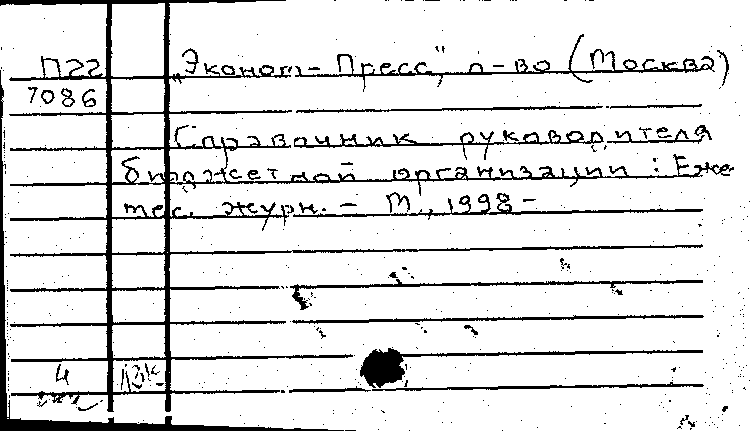 П22
7086
„Эконом-Пресс", п-во (Москва)
Справочник руководителя
бюджетной организации: Еже
мес. журн. - М., 1998 -
4
13к